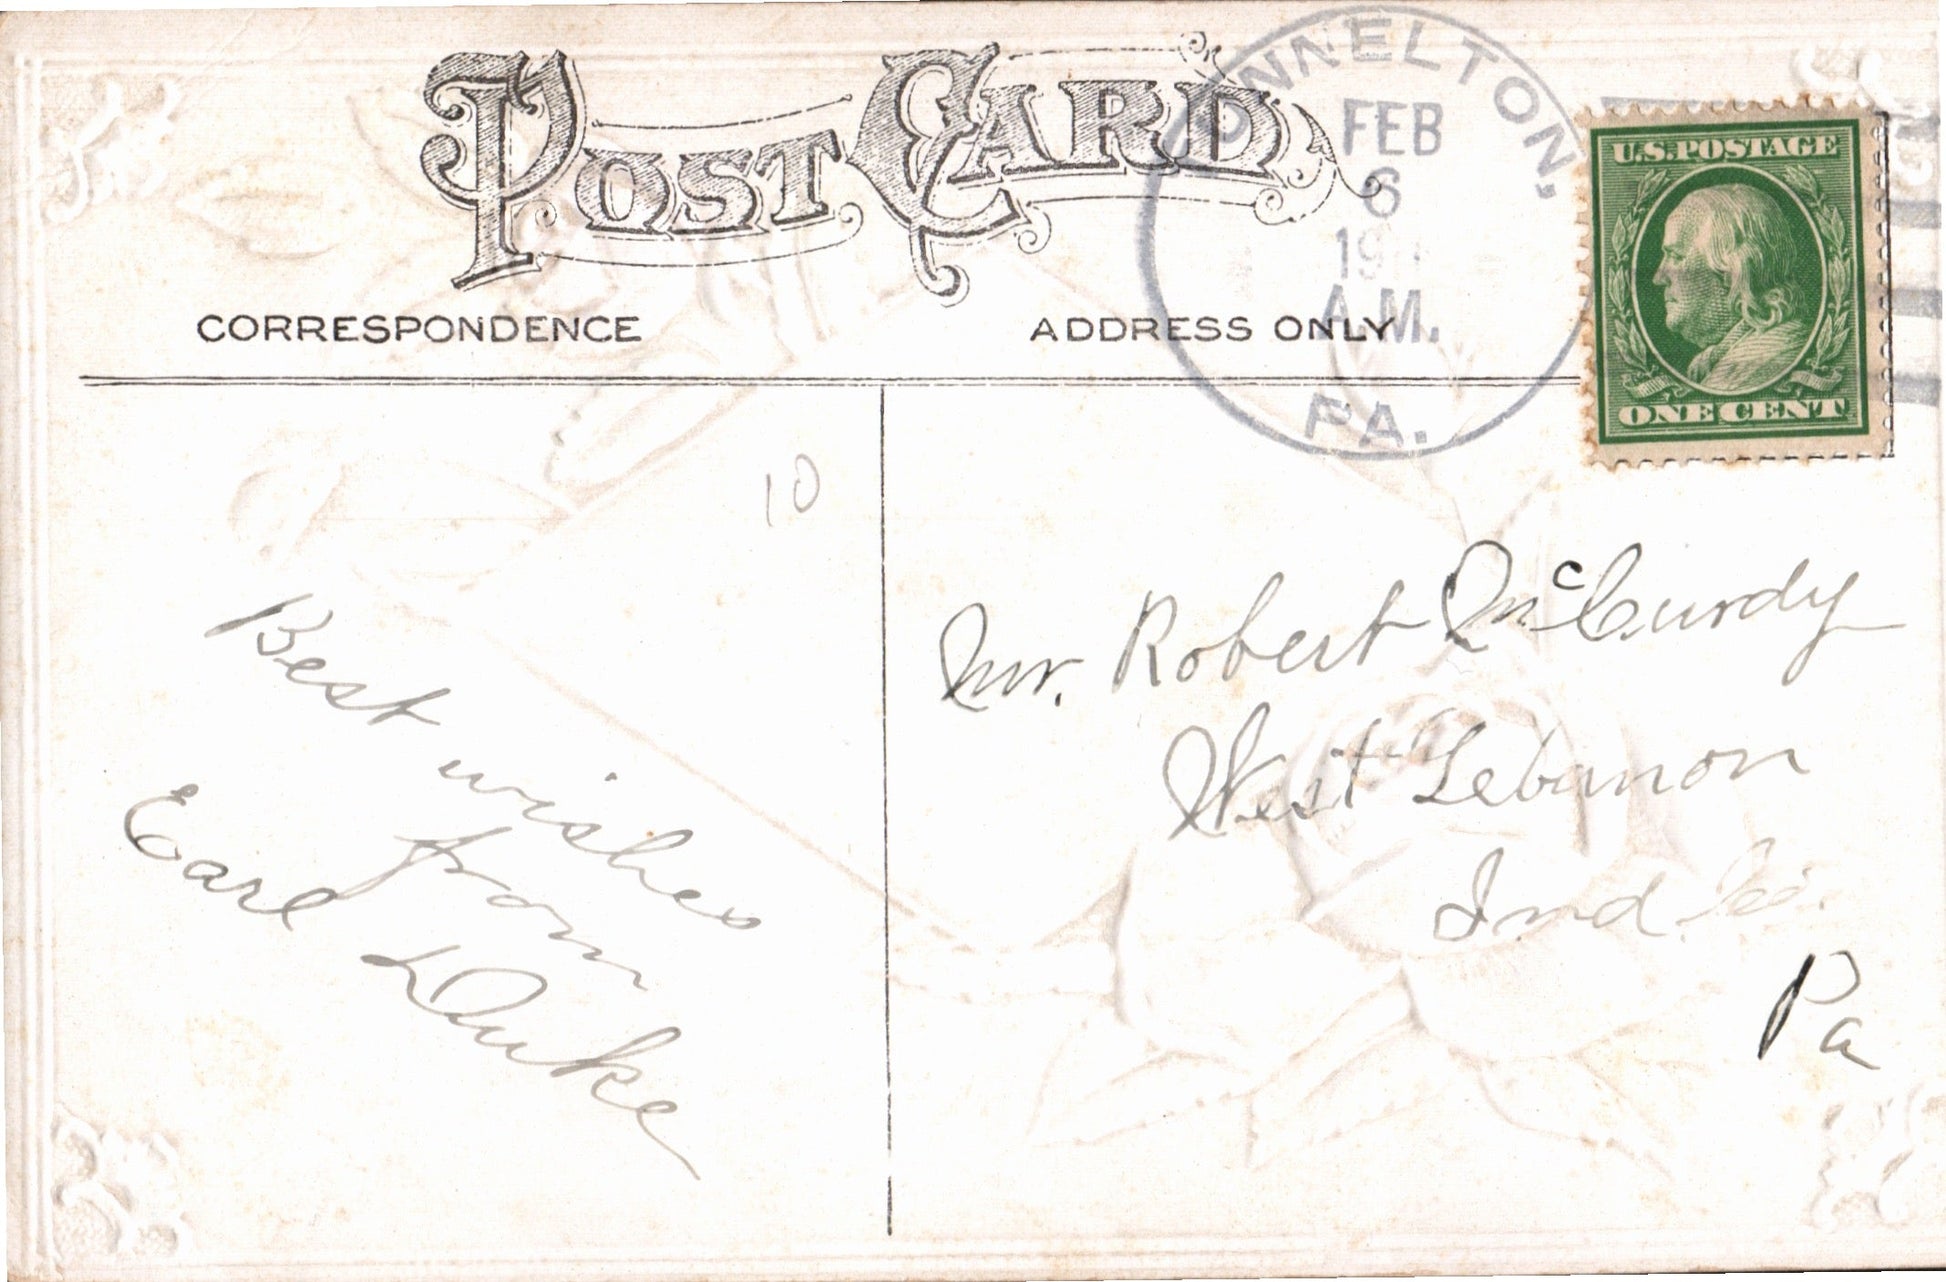 POST CARD
NNELTON,
FEB
6
19
A.M.
PA.
U.S. POSTAGE
ONE CENT
CORRESPONDENCE
ADDRESS ONLY
10
Best wishes
from
Earl Duke
Mr. Robert McCurdy
West Lebanon
Ind. Co.
Pa